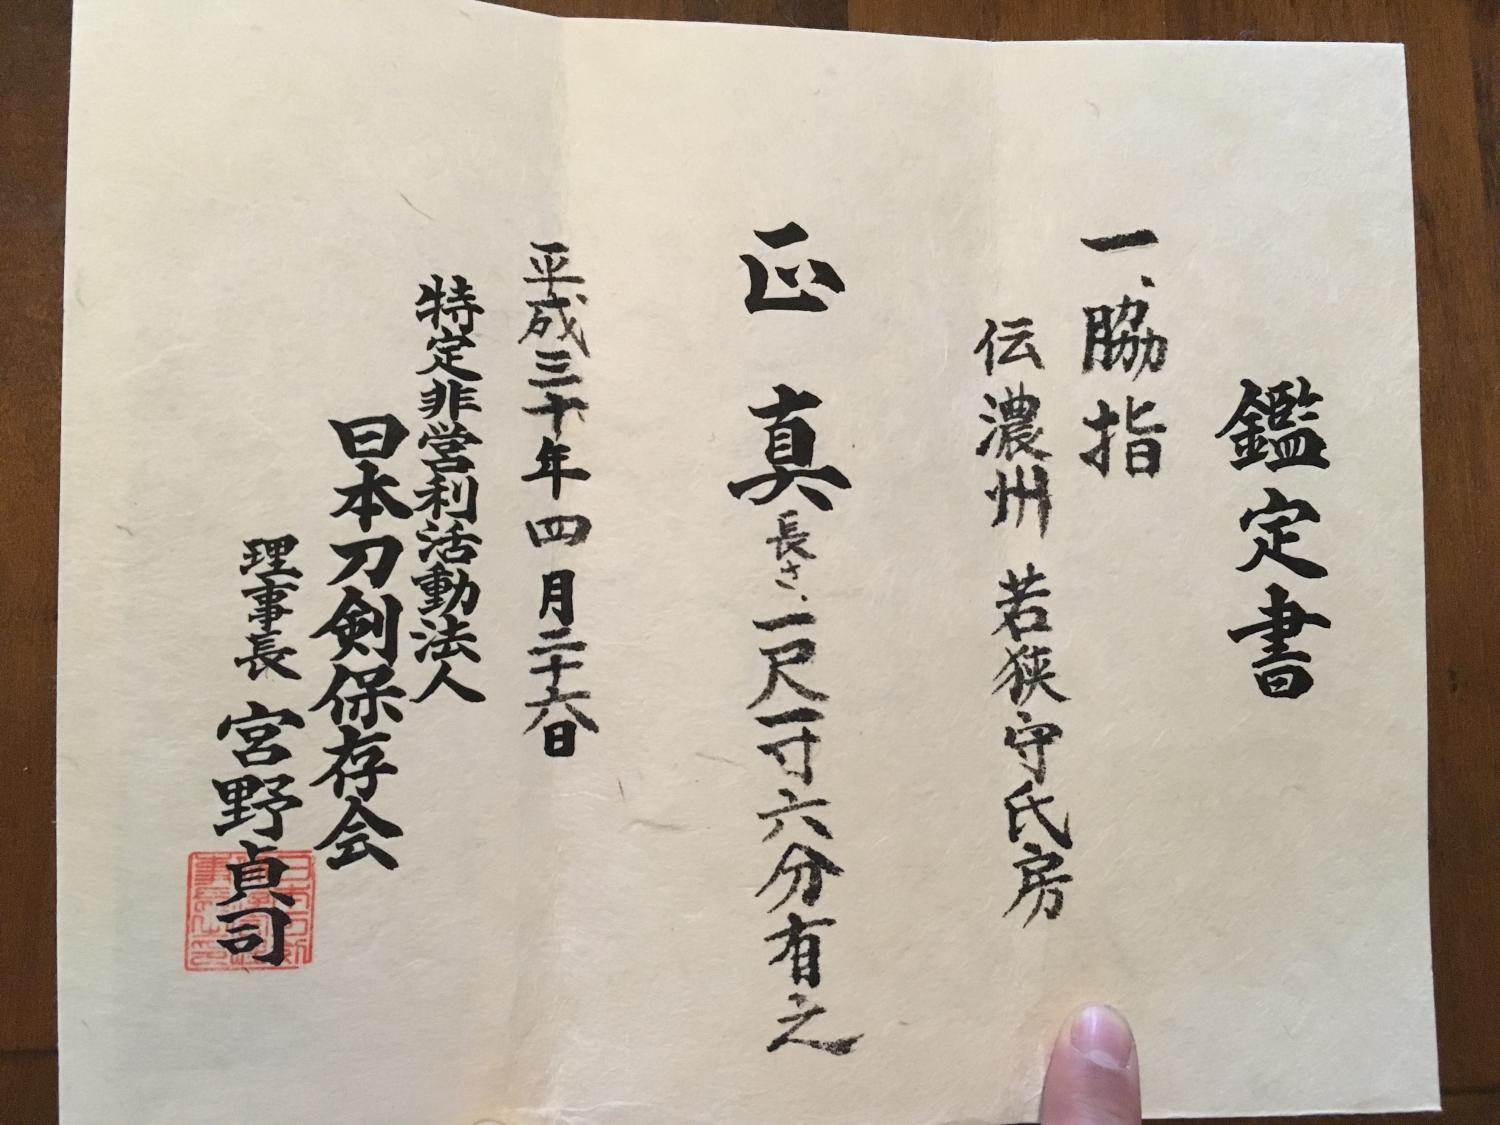 鑑定書
一、脇指
伝濃州 若狭守氏房
正真 長さ、一尺一寸六分有之
平成三十年四月二十六日
特定非営利活動法人
日本刀剣保存会
理事長 宮野貞司